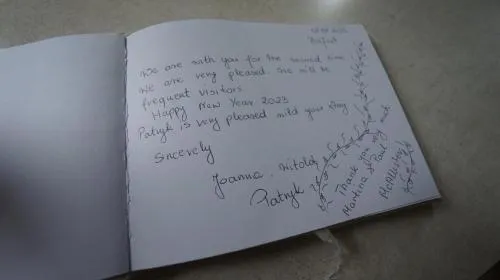 Belfast
We are with you for the second time
We are very pleased. We will be
frequent visitors
Happy New Year 2023
Patryk is very pleased mild your
Sincerely
Joanna. Witold
Patryk
Thank you
Martina & Paul
McAllister